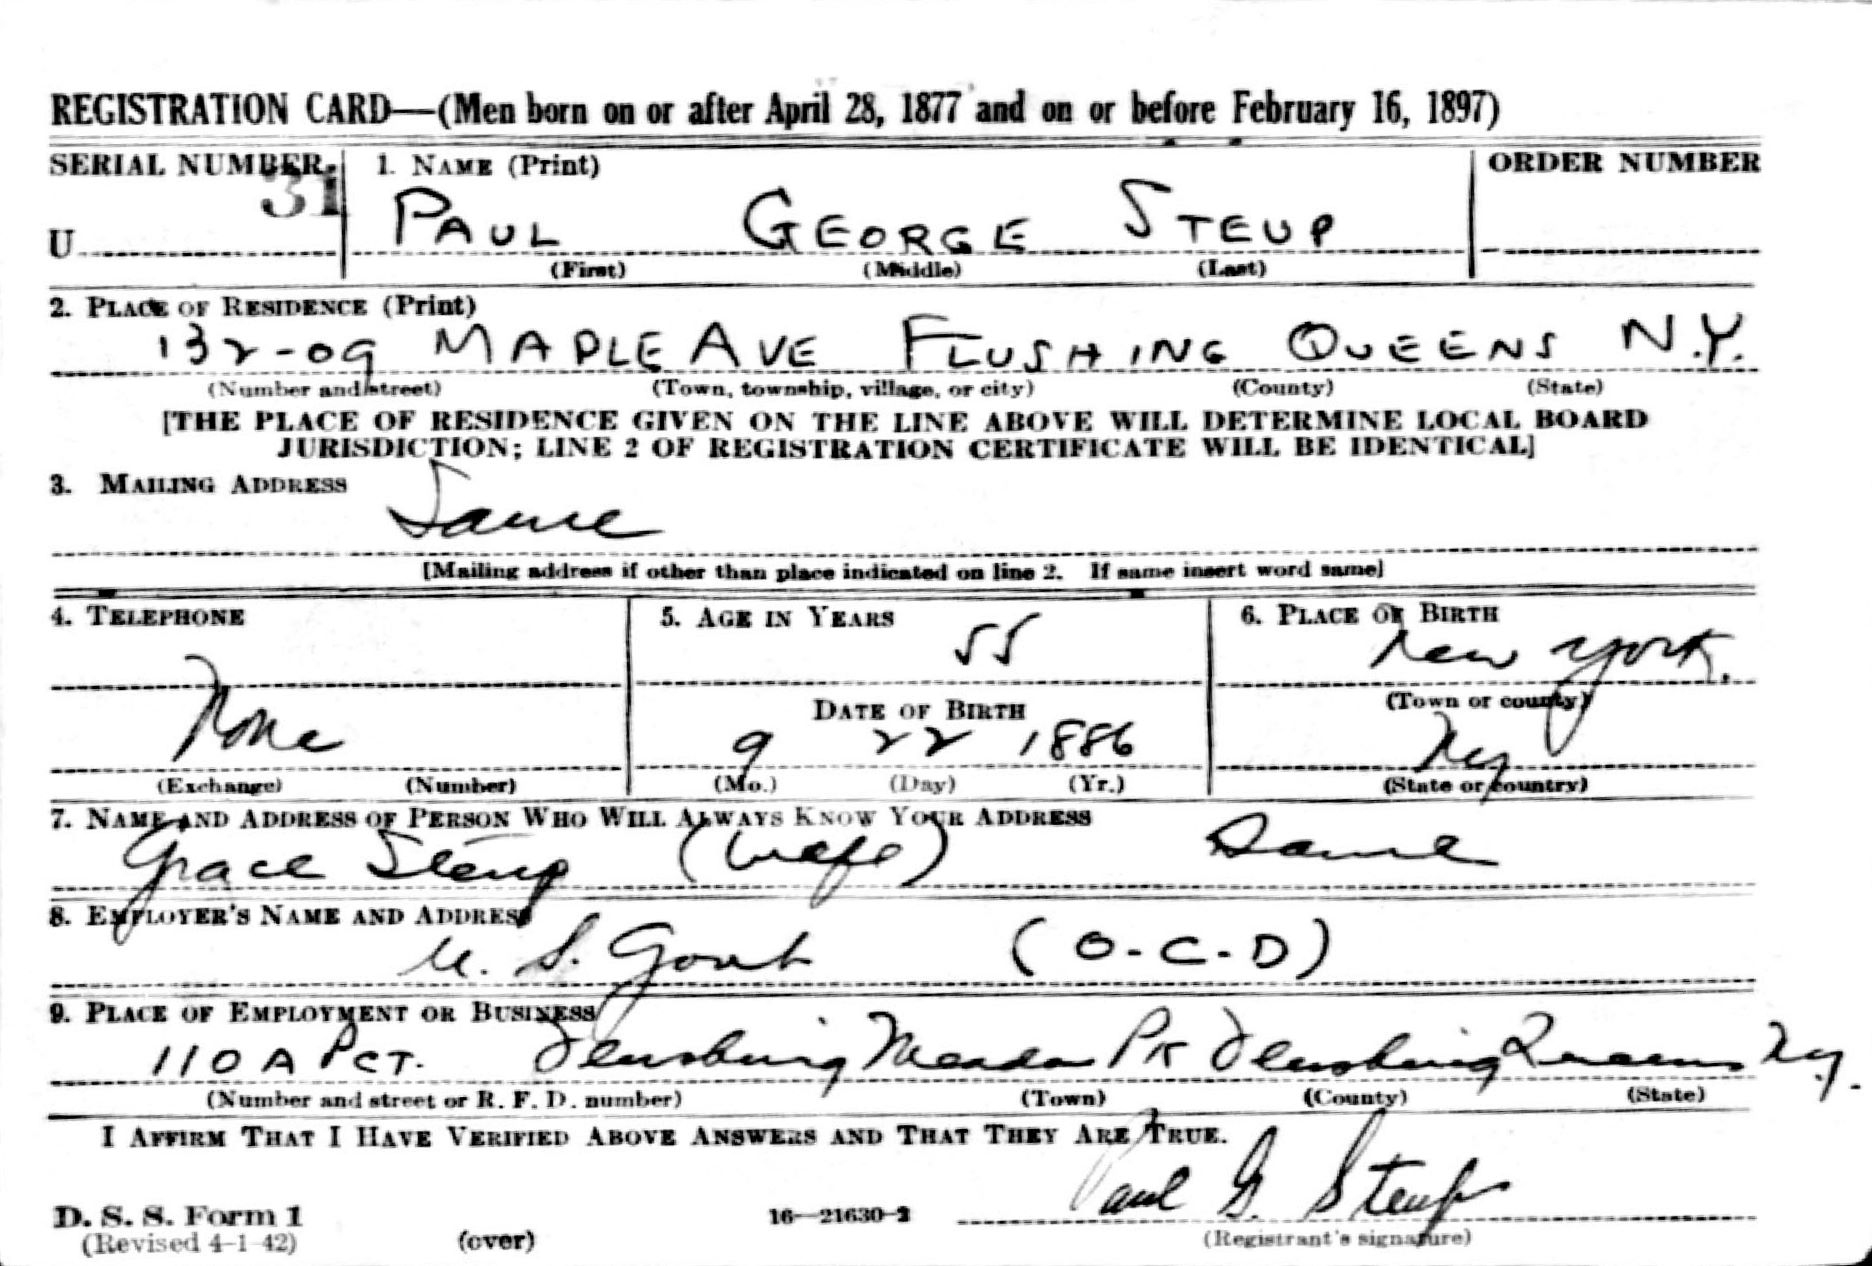 REGISTRATION CARD—(Men born on or after April 28, 1877 and on or before February 16, 1897)
SERIAL NUMBER 1. NAME (Print) ORDER NUMBER
31
U PAUL GEORGE STEUP
(First) (Middle) (Last)
2. PLACE OF RESIDENCE (Print)
132-09 MAPLE AVE FLUSHING QUEENS N.Y.
(Number and street) (Town, township, village, or city) (County) (State)
[THE PLACE OF RESIDENCE GIVEN ON THE LINE ABOVE WILL DETERMINE LOCAL BOARD
JURISDICTION; LINE 2 OF REGISTRATION CERTIFICATE WILL BE IDENTICAL]
3. MAILING ADDRESS
Same
[Mailing address if other than place indicated on line 2. If same insert word same]
4. TELEPHONE 5. AGE IN YEARS 6. PLACE OF BIRTH
55 New York
(Town or county)
DATE OF BIRTH
None 9 22 1886 Ny
(Exchange) (Number) (Mo.) (Day) (Yr.) (State or country)
7. NAME AND ADDRESS OF PERSON WHO WILL ALWAYS KNOW YOUR ADDRESS
Grace Steup (Wife) Same
8. EMPLOYER'S NAME AND ADDRESS
U. S. Govt (O-C-D)
9. PLACE OF EMPLOYMENT OR BUSINESS
110 A PCT. Flushing Meadow PK Flushing Queens Ny.
(Number and street or R. F. D. number) (Town) (County) (State)
I AFFIRM THAT I HAVE VERIFIED ABOVE ANSWERS AND THAT THEY ARE TRUE.
Paul G. Steup
D. S. S. Form 1 16—21630-2
(Revised 4-1-42) (over) (Registrant's signature)